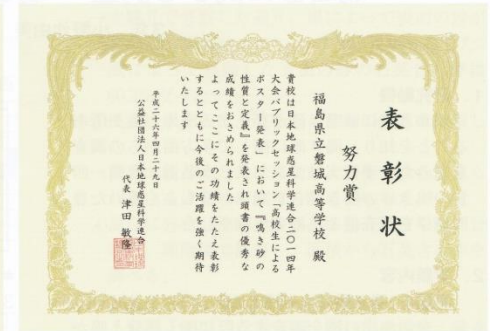 表彰状
努力賞
福島県立磐城高等学校 殿
貴校は日本地球惑星科学連合二〇一四年
大会パブリックセッション「高校生による
ポスター発表」において『鳴き砂の
性質と定義』を発表され頭書の優秀な
成績をおさめられました
よってここにその功績をたたえ表彰
するとともに今後のご活躍を強く期待
いたします
平成二十六年四月二十九日
公益社団法人日本地球惑星科学連合
代表 津田 敏隆